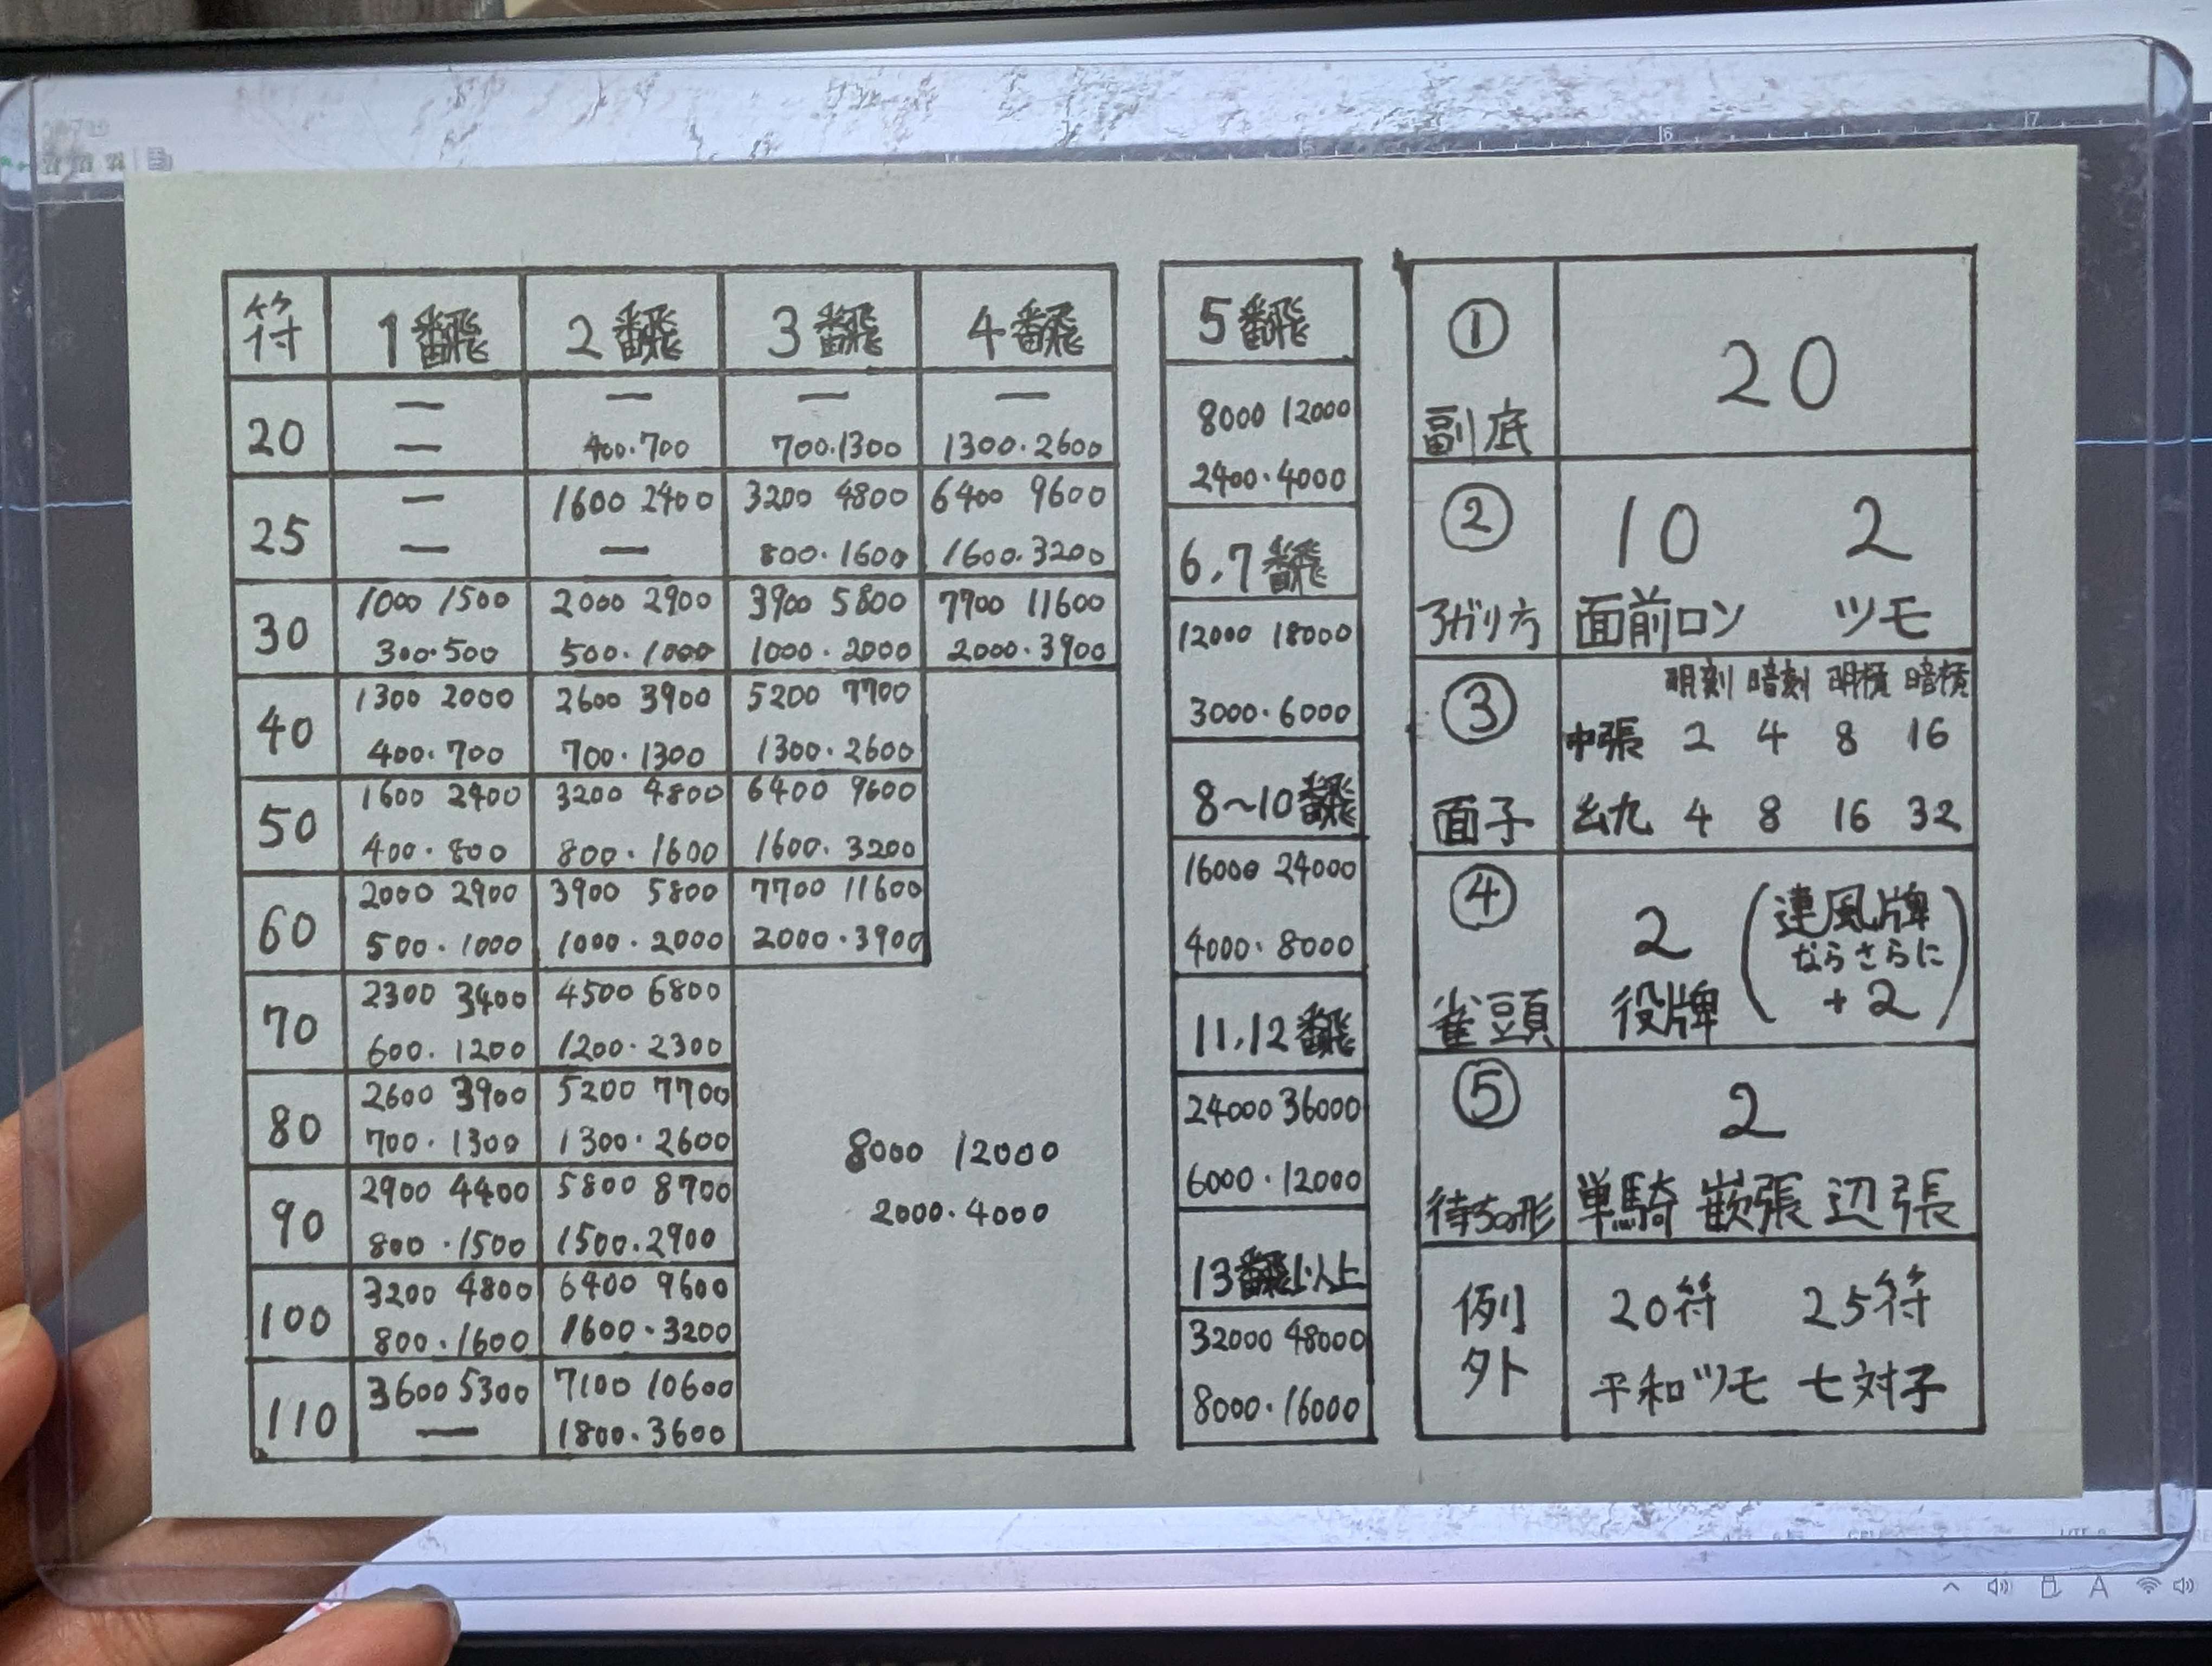 符 1翻 2翻 3翻 4翻
20 ー ー ー ー
ー 400・700 700・1300 1300・2600
25 ー 1600 2400 3200 4800 6400 9600
ー ー 800・1600 1600・3200
30 1000 1500 2000 2900 3900 5800 7900 11600
300・500 500・1000 1000・2000 2000・3900
40 1300 2000 2600 3900 5200 7700
400・700 700・1300 1300・2600
50 1600 2400 3200 4800 6400 9600
400・800 800・1600 1600・3200
60 2000 2900 3900 5800 7700 11600
500・1000 1000・2000 2000・3900
70 2300 3400 4500 6800
600・1200 1200・2300
80 2600 3900 5200 7700
700・1300 1300・2600
90 2900 4400 5800 8700
800・1500 1500・2900
100 3200 4800 6400 9600
800・1600 1600・3200
110 3600 5300 7100 10600
ー 1800・3600
8000 12000
2000・4000
5翻
8000 12000
2400・4000
6,7翻
12000 18000
3000・6000
8〜10翻
16000 24000
4000・8000
11,12翻
24000 36000
6000・12000
13翻以上
32000 48000
8000・16000
① 副底
20
② アガリ方
10 2
面前ロン ツモ
③ 面子
明刻 暗刻 明槓 暗槓
中張 2 4 8 16
幺九 4 8 16 32
④ 雀頭
2
役牌
(連風牌
ならさらに
+2)
⑤ 待ちの形
2
単騎 嵌張 辺張
例外
20符 25符
平和ツモ 七対子
6
7
A